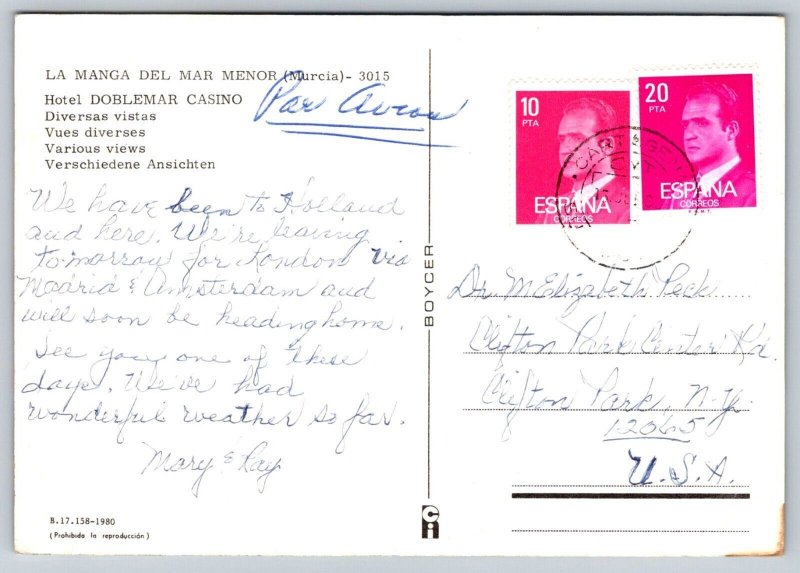 LA MANGA DEL MAR MENOR (Murcia) - 3015
Hotel DOBLEMAR CASINO
Diversas vistas
Vues diverses
Various views
Verschiedene Ansichten
Par Avion
We have been to Holland
and here. We're leaving
tomorrow for London via
Madrid & Amsterdam and
will soon be heading home.
See you one of these
days. We've had
wonderful weather so far.
Mary & Ray
B.17.158-1980
(Prohibida la reproducción)
BOYCER
ci
10
PTA
ESPAÑA
CORREOS
20
PTA
ESPAÑA
CORREOS
F.N.M.T.
Dr. M Elizabeth Peck
Clifton Park Center Rd.
Clifton Park, N.Y.
12065
U.S.A.